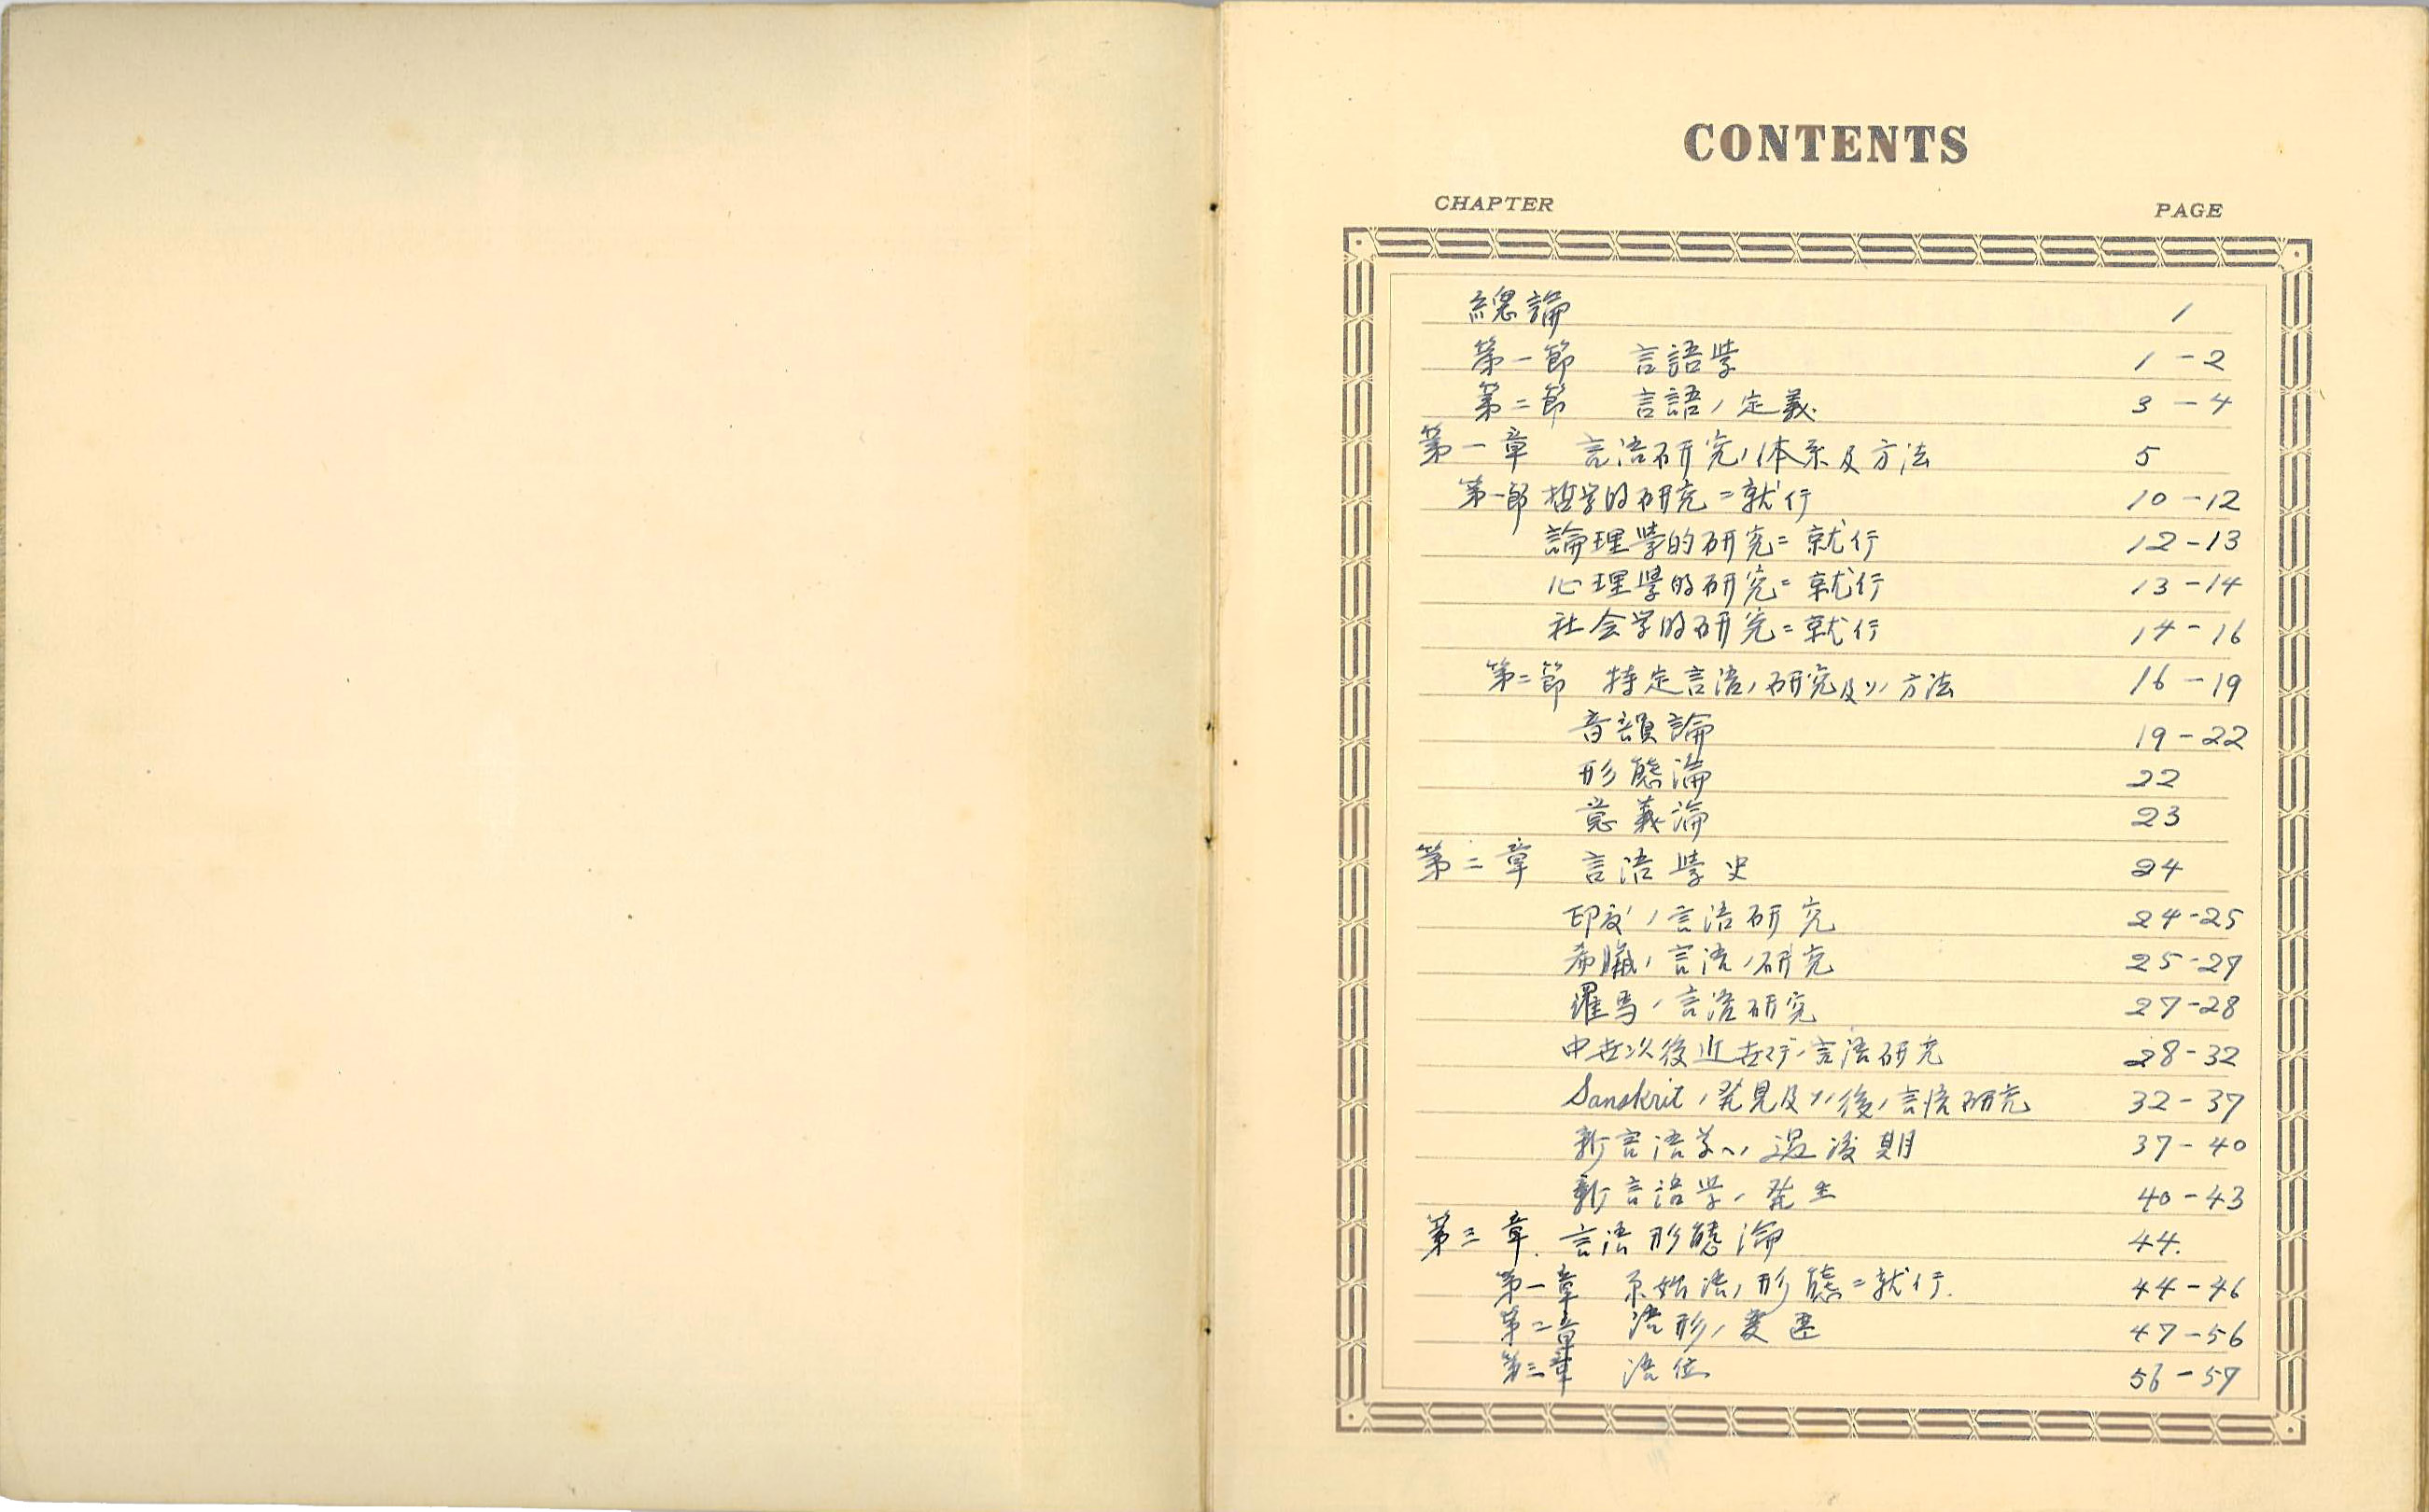 CONTENTS
CHAPTER PAGE
總論 1
第一節 言語學 1-2
第二節 言語ノ定義 3-4
第一章 言語研究ノ体系及方法 5
第一節 哲学的研究ニ就イテ 10-12
論理學的研究ニ就イテ 12-13
心理學的研究ニ就イテ 13-14
社会学的研究ニ就イテ 14-16
第二節 特定言語ノ研究及ソノ方法 16-19
音韻論 19-22
形態論 22
意義論 23
第二章 言語學史 24
印度ノ言語研究 24-25
希臘ノ言語ノ研究 25-27
羅馬ノ言語研究 27-28
中世以後近世マデノ言語研究 28-32
Sanskritノ発見及ソノ後ノ言語研究 32-37
新言語学ヘノ過渡期 37-40
新言語学ノ発生 40-43
第三章. 言語形態論 44.
第一章 原始語ノ形態ニ就イテ. 44-46
第二章 語形ノ変遷 47-56
第三章 語位 56-57